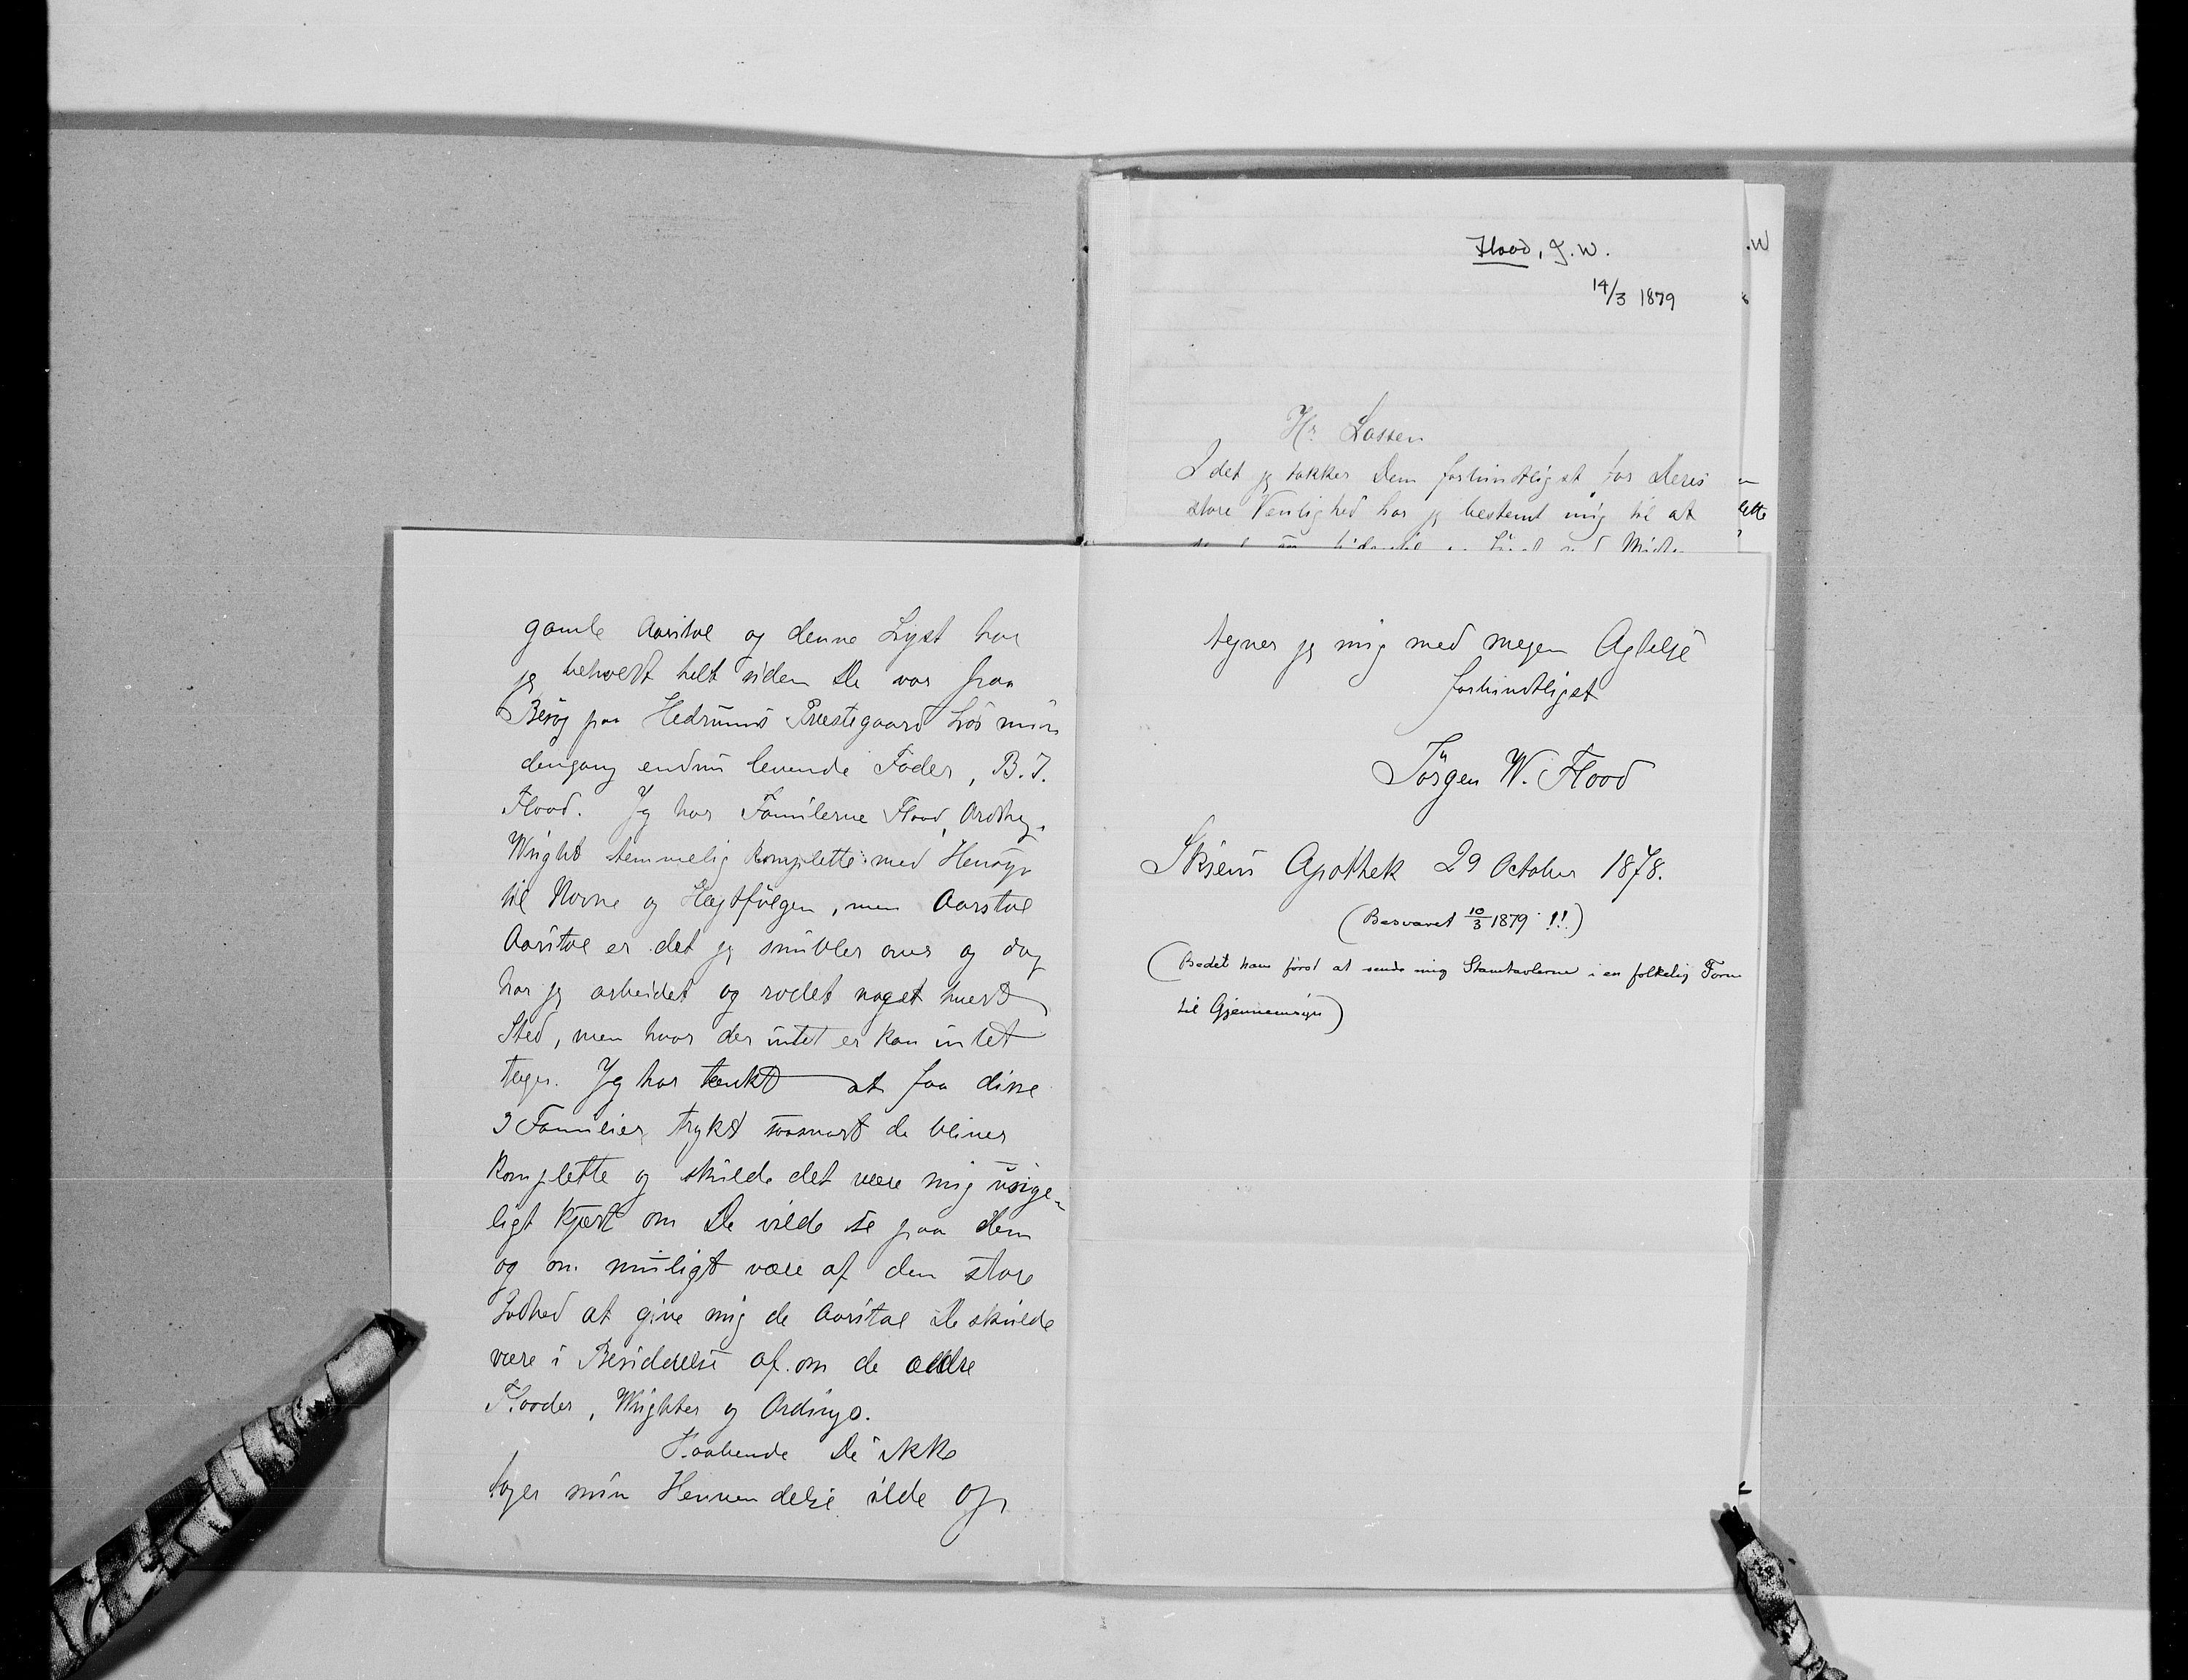 gamle Aarstal og denne Lyst har
jeg beholdt helt siden De var paa
Besøg paa Hedrums Præstegaard hos min
dengang endnu levende Fader, B. J.
Flood. Jeg har Familerne Flood, Ording,
Wright temmelig komplette med Hensyn
til Navne og Slægtfølgen, men Aarstal
Aarstal er det jeg snubler over og dog
har jeg arbeidet og rodet noget hvert
Sted, men hvor der intet er kan intet
tages. Jeg har tænkt at faa disse
3 Familier trykt saasnart de bliver
komplette og skulde det være mig usige-
ligt kjært om De vilde se paa dem
og om muligt være af den store
Godhed at give mig de Aarstal De skulde
være i Besiddelse af om de ældre
Flooder, Wrighter og Ordings.
Haabende De ikke
tager min Henvendelse ilde op
tegner jeg mig med megen Agtelse
forbindtligst
Jörgen W. Flood
Skiens Apothek 29 October 1878.
(Besvaret 10/3 1879 !!)
(Bedet ham först at sende mig Stamtavlerne i en folkelig Form
til Gjennemsyn)
Flood, J. W.
14/3 1879
Hr. Lassen
Idet jeg takker Dem forbindtligst for Deres
store Venlighed har jeg bestemt mig til at
.W
lette